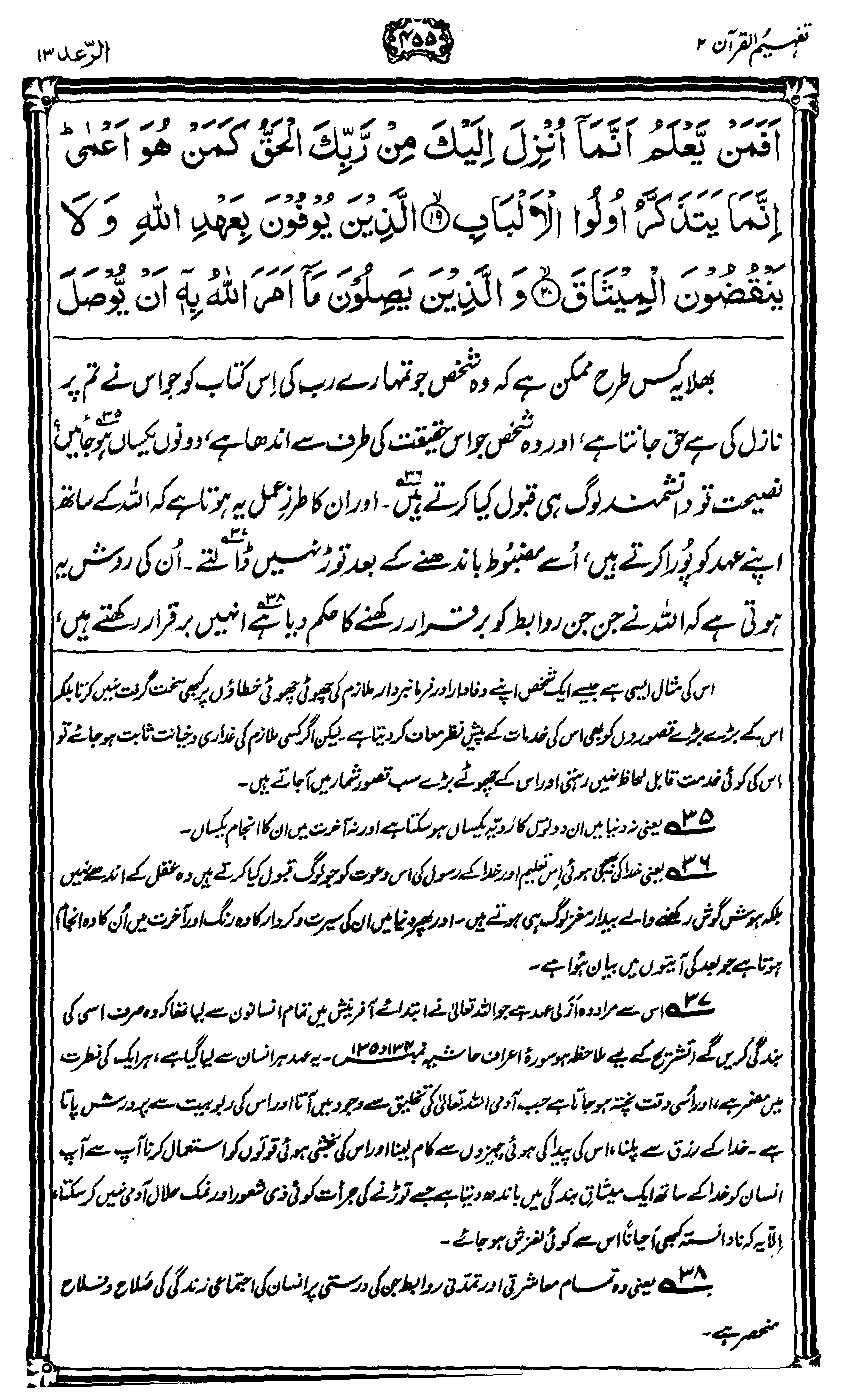 تفہیم القرآن ۲
۴۵۵
الرّعد ۱۳
اَفَمَنْ يَّعْلَمُ اَنَّمَاۤ اُنْزِلَ اِلَيْكَ مِنْ رَّبِّكَ الْحَقُّ كَمَنْ هُوَ اَعْمٰىؕ
اِنَّمَا يَتَذَكَّرُ اُولُوا الْاَلْبَابِ ۙ﴿۱۹﴾ الَّذِيْنَ يُوْفُوْنَ بِعَهْدِ اللّٰهِ وَلَا
يَنْقُضُوْنَ الْمِيْثَاقَ ۙ﴿۲۰﴾ وَ الَّذِيْنَ يَصِلُوْنَ مَاۤ اَمَرَ اللّٰهُ بِهٖۤ اَنْ يُّوْصَلَ
بھلا یہ کس طرح ممکن ہے کہ وہ شخص جو تمہارے رب کی اِس کتاب کو جو اس نے تم پر
نازل کی ہے حق جانتا ہے، اور وہ شخص جو اس حقیقت کی طرف سے اندھا ہے، دونوں یکساں ہو جائیں؟۳۵
نصیحت تو دانشمند لوگ ہی قبول کیا کرتے ہیں۳۶۔ اور ان کا طرزِ عمل یہ ہوتا ہے کہ اللہ کے ساتھ
اپنے عہد کو پُورا کرتے ہیں، اُسے مضبُوط باندھنے کے بعد توڑ نہیں ڈالتے۳۷۔ اُن کی روش یہ
ہوتی ہے کہ اللہ نے جن جن روابط کو برقرار رکھنے کا حکم دیا ہے۳۸ انہیں برقرار رکھتے ہیں،
اس کی مثال ایسی ہے جیسے ایک شخص اپنے وفادار اور فرمانبردار ملازم کی چھوٹی چھوٹی خطاؤں پر کبھی سخت گرفت نہیں کرتا بلکہ
اس کے بڑے بڑے قصوروں کو بھی اس کی خدمات کے پیشِ نظر معاف کر دیتا ہے۔ لیکن اگر کسی ملازم کی غداری و خیانت ثابت ہو جائے تو
اس کی کوئی خدمت قابلِ لحاظ نہیں رہتی اور اس کے چھوٹے بڑے سب قصور شمار میں آجاتے ہیں۔
۳۵ یعنی نہ دنیا میں ان دونوں کا رویّہ یکساں ہو سکتا ہے اور نہ آخرت میں ان کا انجام یکساں۔
۳۶ یعنی خدا کی بھیجی ہوئی اِس تعلیم اور خدا کے رسول کی اس دعوت کو جو لوگ قبول کیا کرتے ہیں وہ عقل کے اندھے نہیں
بلکہ ہوش گوش رکھنے والے بیدار مغز لوگ ہی ہوتے ہیں۔ اور پھر دنیا میں ان کی سیرت و کردار کا وہ رنگ اور آخرت میں اُن کا وہ انجام
ہوتا ہے جو بعد کی آیتوں میں بیان ہُوا ہے۔
۳۷ اس سے مراد وہ ازلی عہد ہے جو اللہ تعالیٰ نے ابتدائے آفرینش میں تمام انسانوں سے لیا تھا کہ وہ صرف اسی کی
بندگی کریں گے (تشریح کے لیے ملاحظہ ہو سورۂ اعراف حاشیہ نمبر ۱۳۴ و ۱۳۵)۔ یہ عہد ہر انسان سے لیا گیا ہے، ہر ایک کی فطرت
میں مضمر ہے، اور اُسی وقت پختہ ہو جاتا ہے جب آدمی اللہ تعالیٰ کی تخلیق سے وجود میں آتا اور اس کی ربوبیت سے پرورش پاتا
ہے۔ خدا کے رزق سے پلنا، اس کی پیدا کی ہوئی چیزوں سے کام لینا اور اس کی بخشی ہوئی قوتوں کو استعمال کرنا آپ سے آپ
انسان کو خدا کے ساتھ ایک میثاقِ بندگی میں باندھ دیتا ہے جسے توڑنے کی جرأت کوئی ذی شعور اور نمک حلال آدمی نہیں کر سکتا،
اِلّا یہ کہ نادانستہ کبھی احیاناً اس سے کوئی لغزش ہو جائے۔
۳۸ یعنی وہ تمام معاشرتی اور تمدنی روابط جن کی درستی پر انسان کی اجتماعی زندگی کی صَلاح و فلاح
منحصر ہے۔